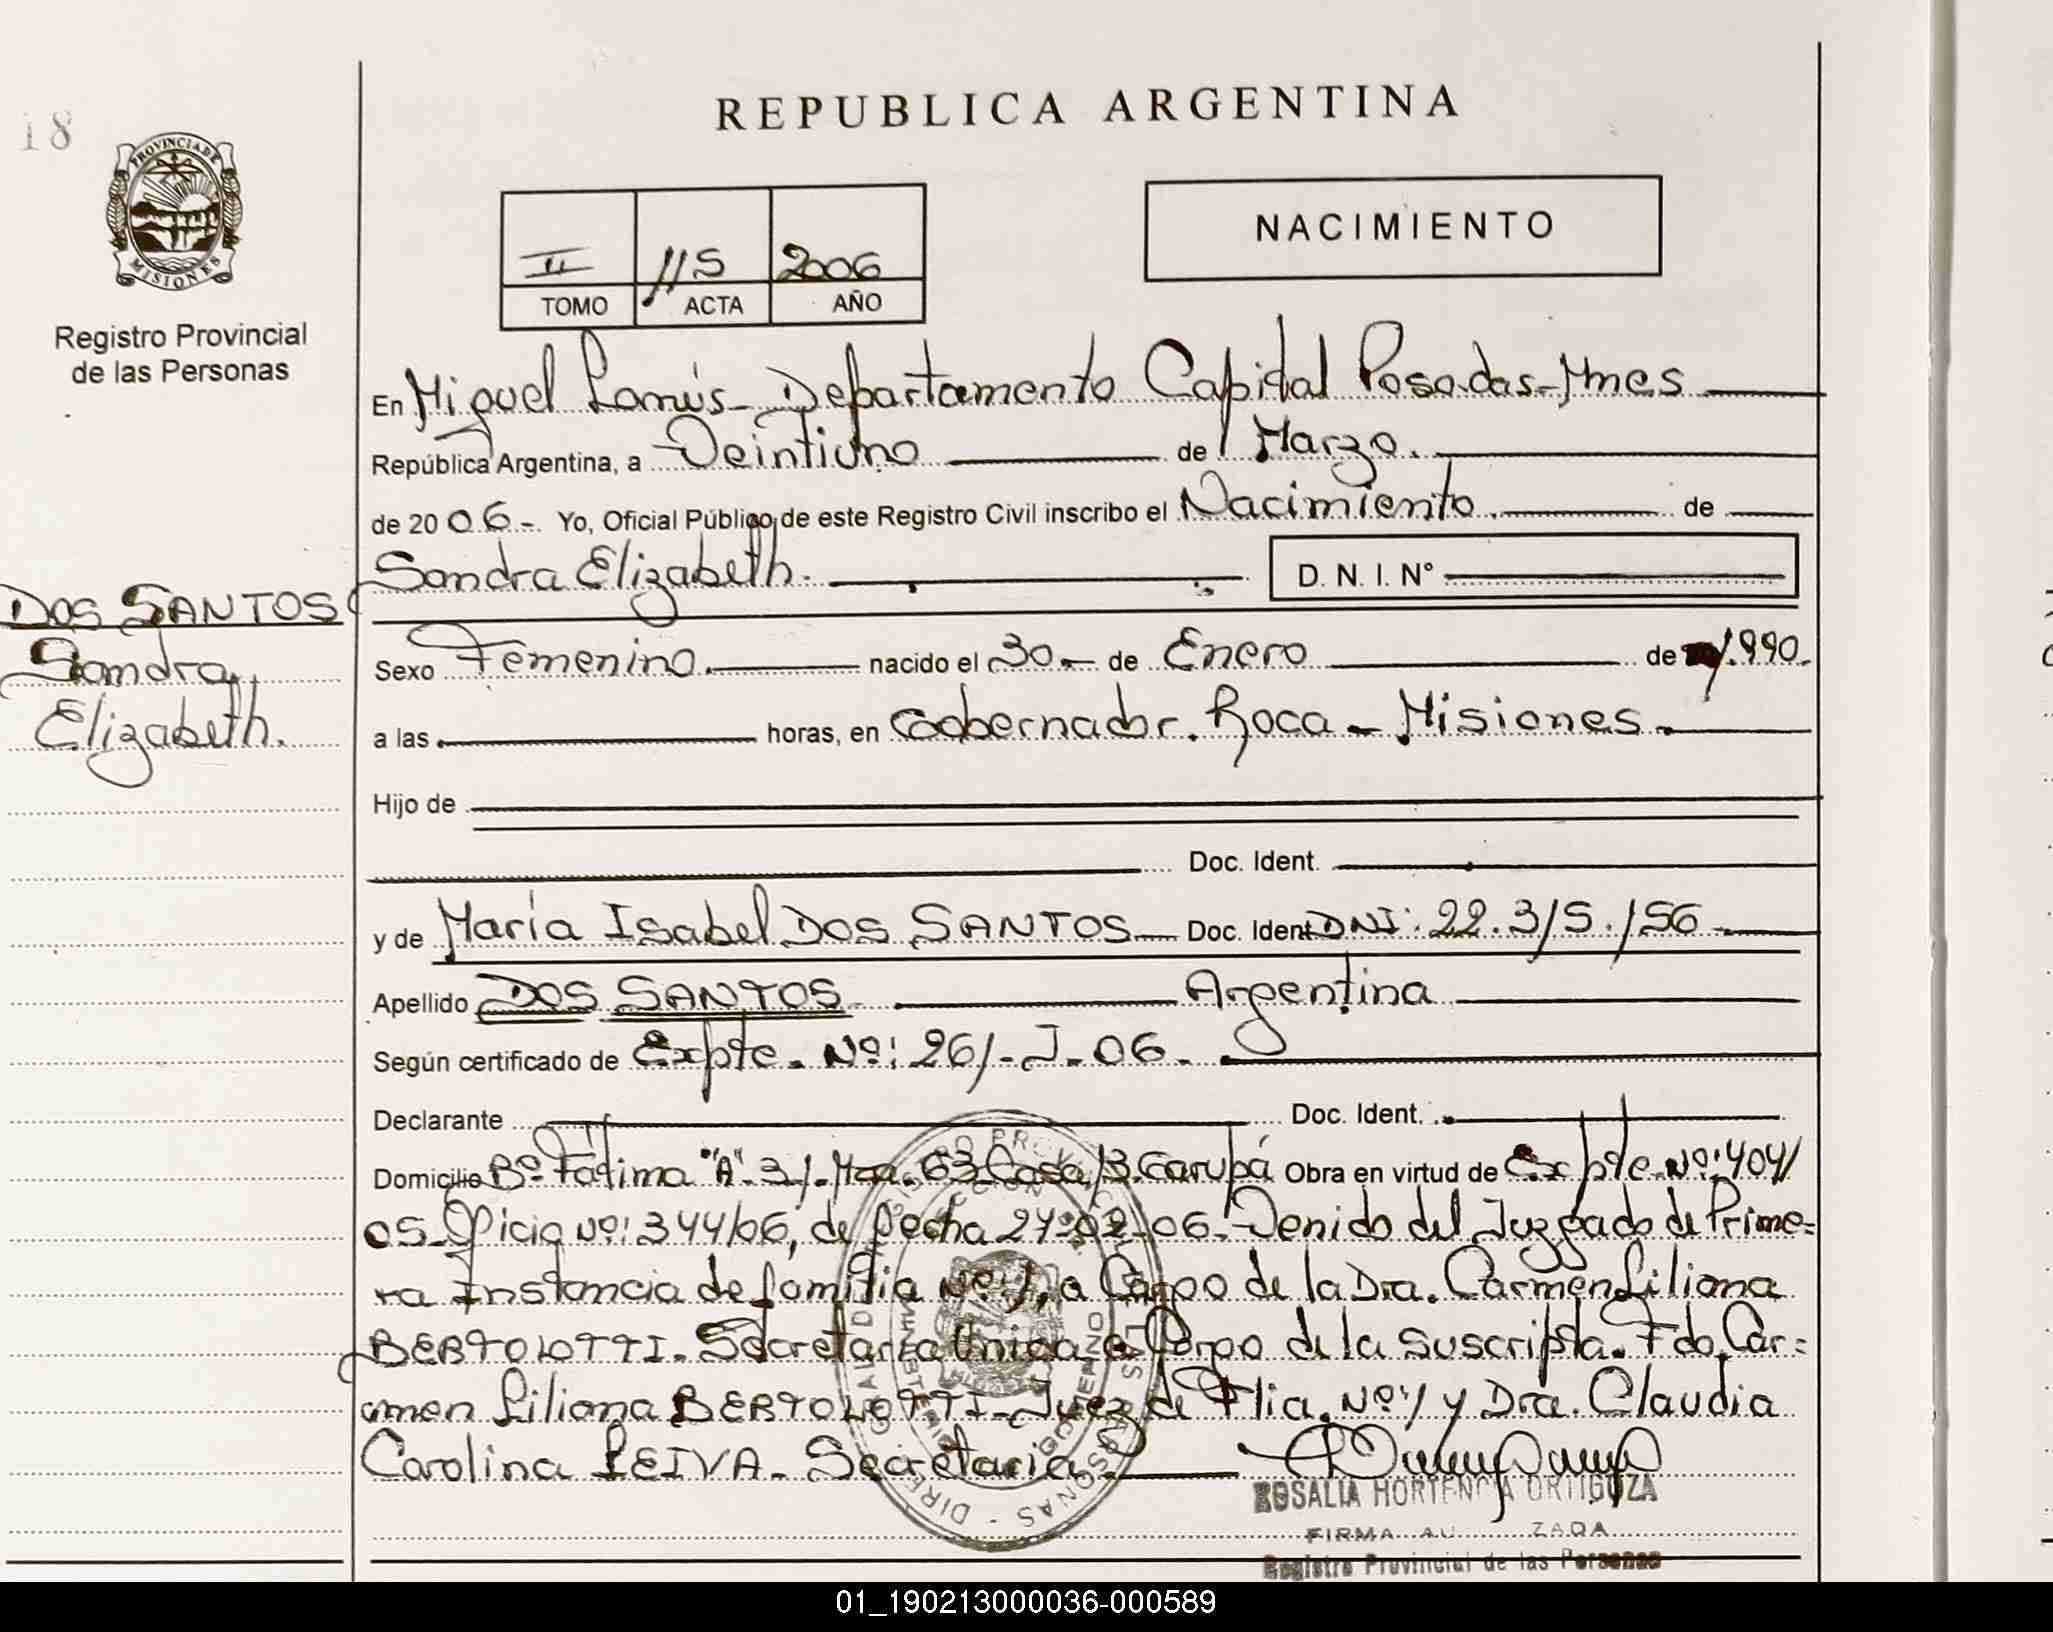 18
PROVINCIA DE
MISIONES
Registro Provincial
de las Personas
DOS SANTOS
Sandra
Elizabeth.
REPUBLICA ARGENTINA
II 115 2006
TOMO ACTA AÑO
NACIMIENTO
En Miguel Lanús - Departamento Capital Posadas - Mnes
República Argentina, a Veintiuno de Marzo.
de 2006.- Yo, Oficial Público de este Registro Civil inscribo el Nacimiento de
Sandra Elizabeth. D. N. I. N°
Sexo Femenino. nacido el 30 - de Enero de 1.990.
a las horas, en Gobernador. Roca - Misiones.
Hijo de
Doc. Ident.
y de María Isabel DOS SANTOS - Doc. Ident DNI: 22.315.156
Apellido DOS SANTOS Argentina
Según certificado de Expte. Nº: 261-J-06.
Declarante Doc. Ident.
Domicilio Bº Fátima "A" 31. Mza. 63 Casa 13. Garupá Obra en virtud de Expte. Nº: 404/
05. Oficio Nº: 344/06, de fecha 27-02-06. Venido del Juzgado de Prime=
ra Instancia de familia Nº: 1, a Cargo de la Dra. Carmen Liliana
BERTOLOTTI. Secretaria Única a Cargo de la suscripta. Fdo. Car=
men Liliana BERTOLOTTI - Juez de Flia. Nº: 1 y Dra. Claudia
Carolina LEIVA. Secretaria.
ROSALIA HORTENCIA ORTIGOZA
FIRMA AU ZADA
Registro Provincial de las Personas
01_190213000036-000589